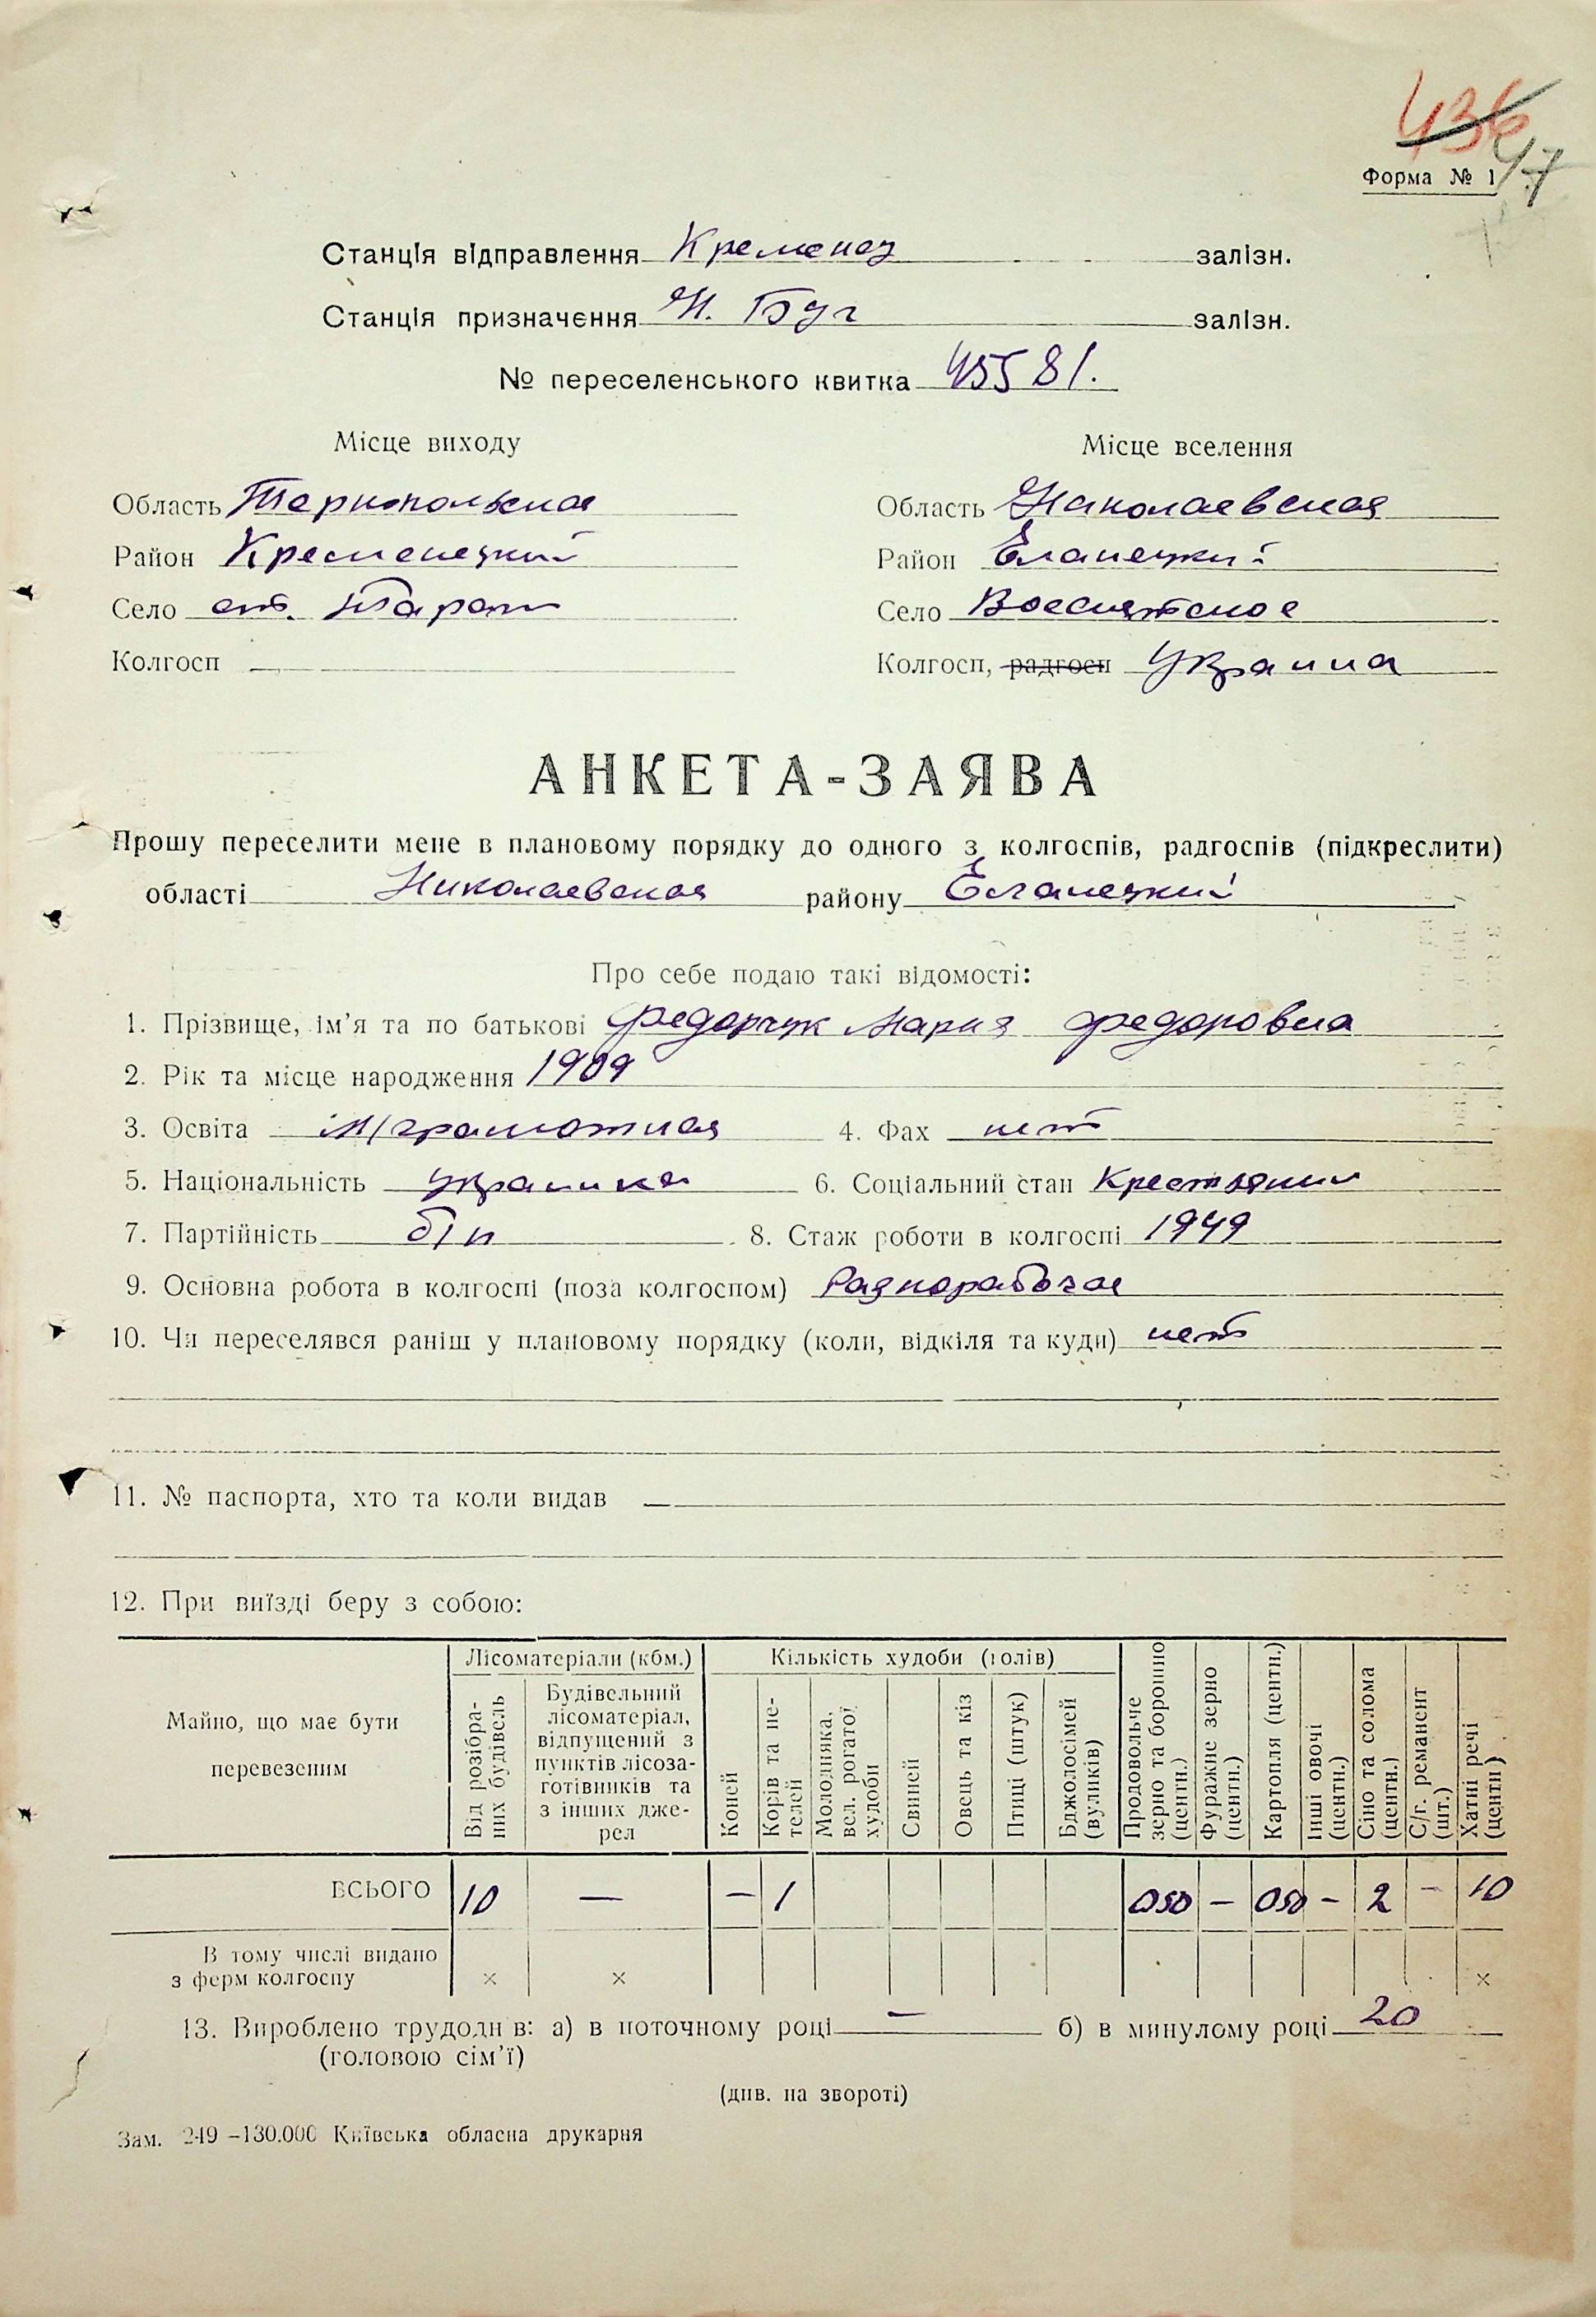 436
47
Форма № 1
Станція відправлення Кременец залізн.
Станція призначення Н. Буг залізн.
№ переселенського квитка 45581.
Місце виходу
Місце вселення
Область Тернопольская
Область Николаевская
Район Кременецкий
Район Еланецкий
Село ст. Тараж
Село Возсиятское
Колгосп —
Колгосп, радгосп Украина
АНКЕТА-ЗАЯВА
Прошу переселити мене в плановому порядку до одного з колгоспів, радгоспів (підкреслити)
області Николаевская району Еланецкий
Про себе подаю такі відомості:
1. Прізвище, ім’я та по батькові Федорчук Мария Федоровна
2. Рік та місце народження 1909
3. Освіта м/грамотная 4. Фах нет
5. Національність украинка 6. Соціальний стан Крестьяни
7. Партійність б/п 8. Стаж роботи в колгоспі 1949
9. Основна робота в колгоспі (поза колгоспом) Разнорабочая
10. Чи переселявся раніш у плановому порядку (коли, відкіля та куди) нет
11. № паспорта, хто та коли видав —
12. При виїзді беру з собою:
Майно, що має бути перевезеним
Лісоматеріали (кбм.)
Від розібраних будівель
Будівельний лісоматеріал, відпущений з пунктів лісозаготівників та з інших джерел
Кількість худоби (голів)
Коней
Корів та нетелей
Молодняка, вел. рогатої худоби
Свиней
Овець та кіз
Птиці (штук)
Бджолосімей (вуликів)
Продовольче зерно та борошно (центн.)
Фуражне зерно (центн.)
Картопля (центн.)
Інші овочі (центн.)
Сіно та солома (центн.)
С/г. реманент (шт.)
Хатні речі (центн)
ВСЬОГО 10 — — 1 050 — 050 — 2 — 10
В тому числі видано
з ферм колгоспу × × ×
13. Вироблено трудодн в: а) в поточному році — б) в минулому році 20
(головою сім’ї)
(див. на звороті)
Зам. 249 —130.000 Київська обласна друкарня